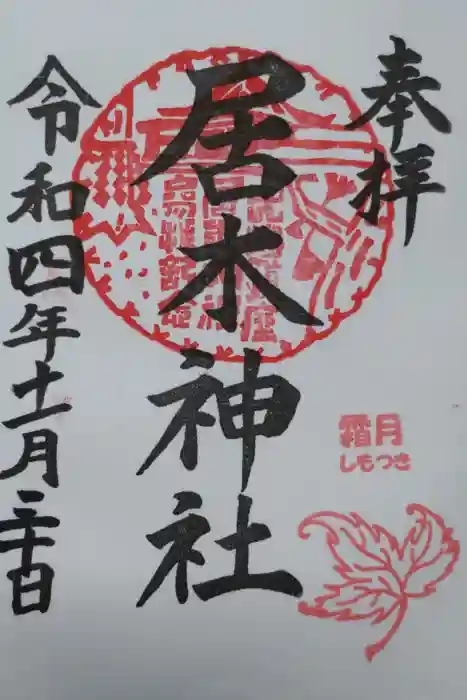 奉拝
居木神社
霜月
しもつき
令和四年十一月三十日